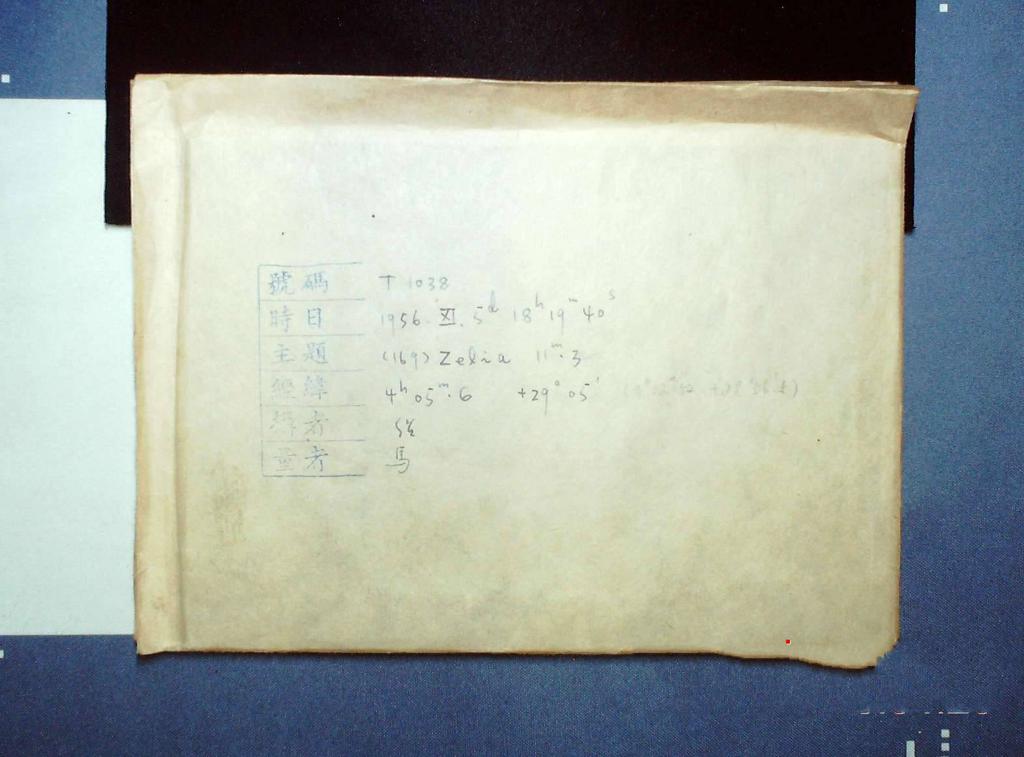 號碼 T 1038
時日 1956. XI. 5d 18h 19m 40s
主題 (169) Zelia 11m.3
經緯 4h 05m.6 +29° 05'
者
者 馬